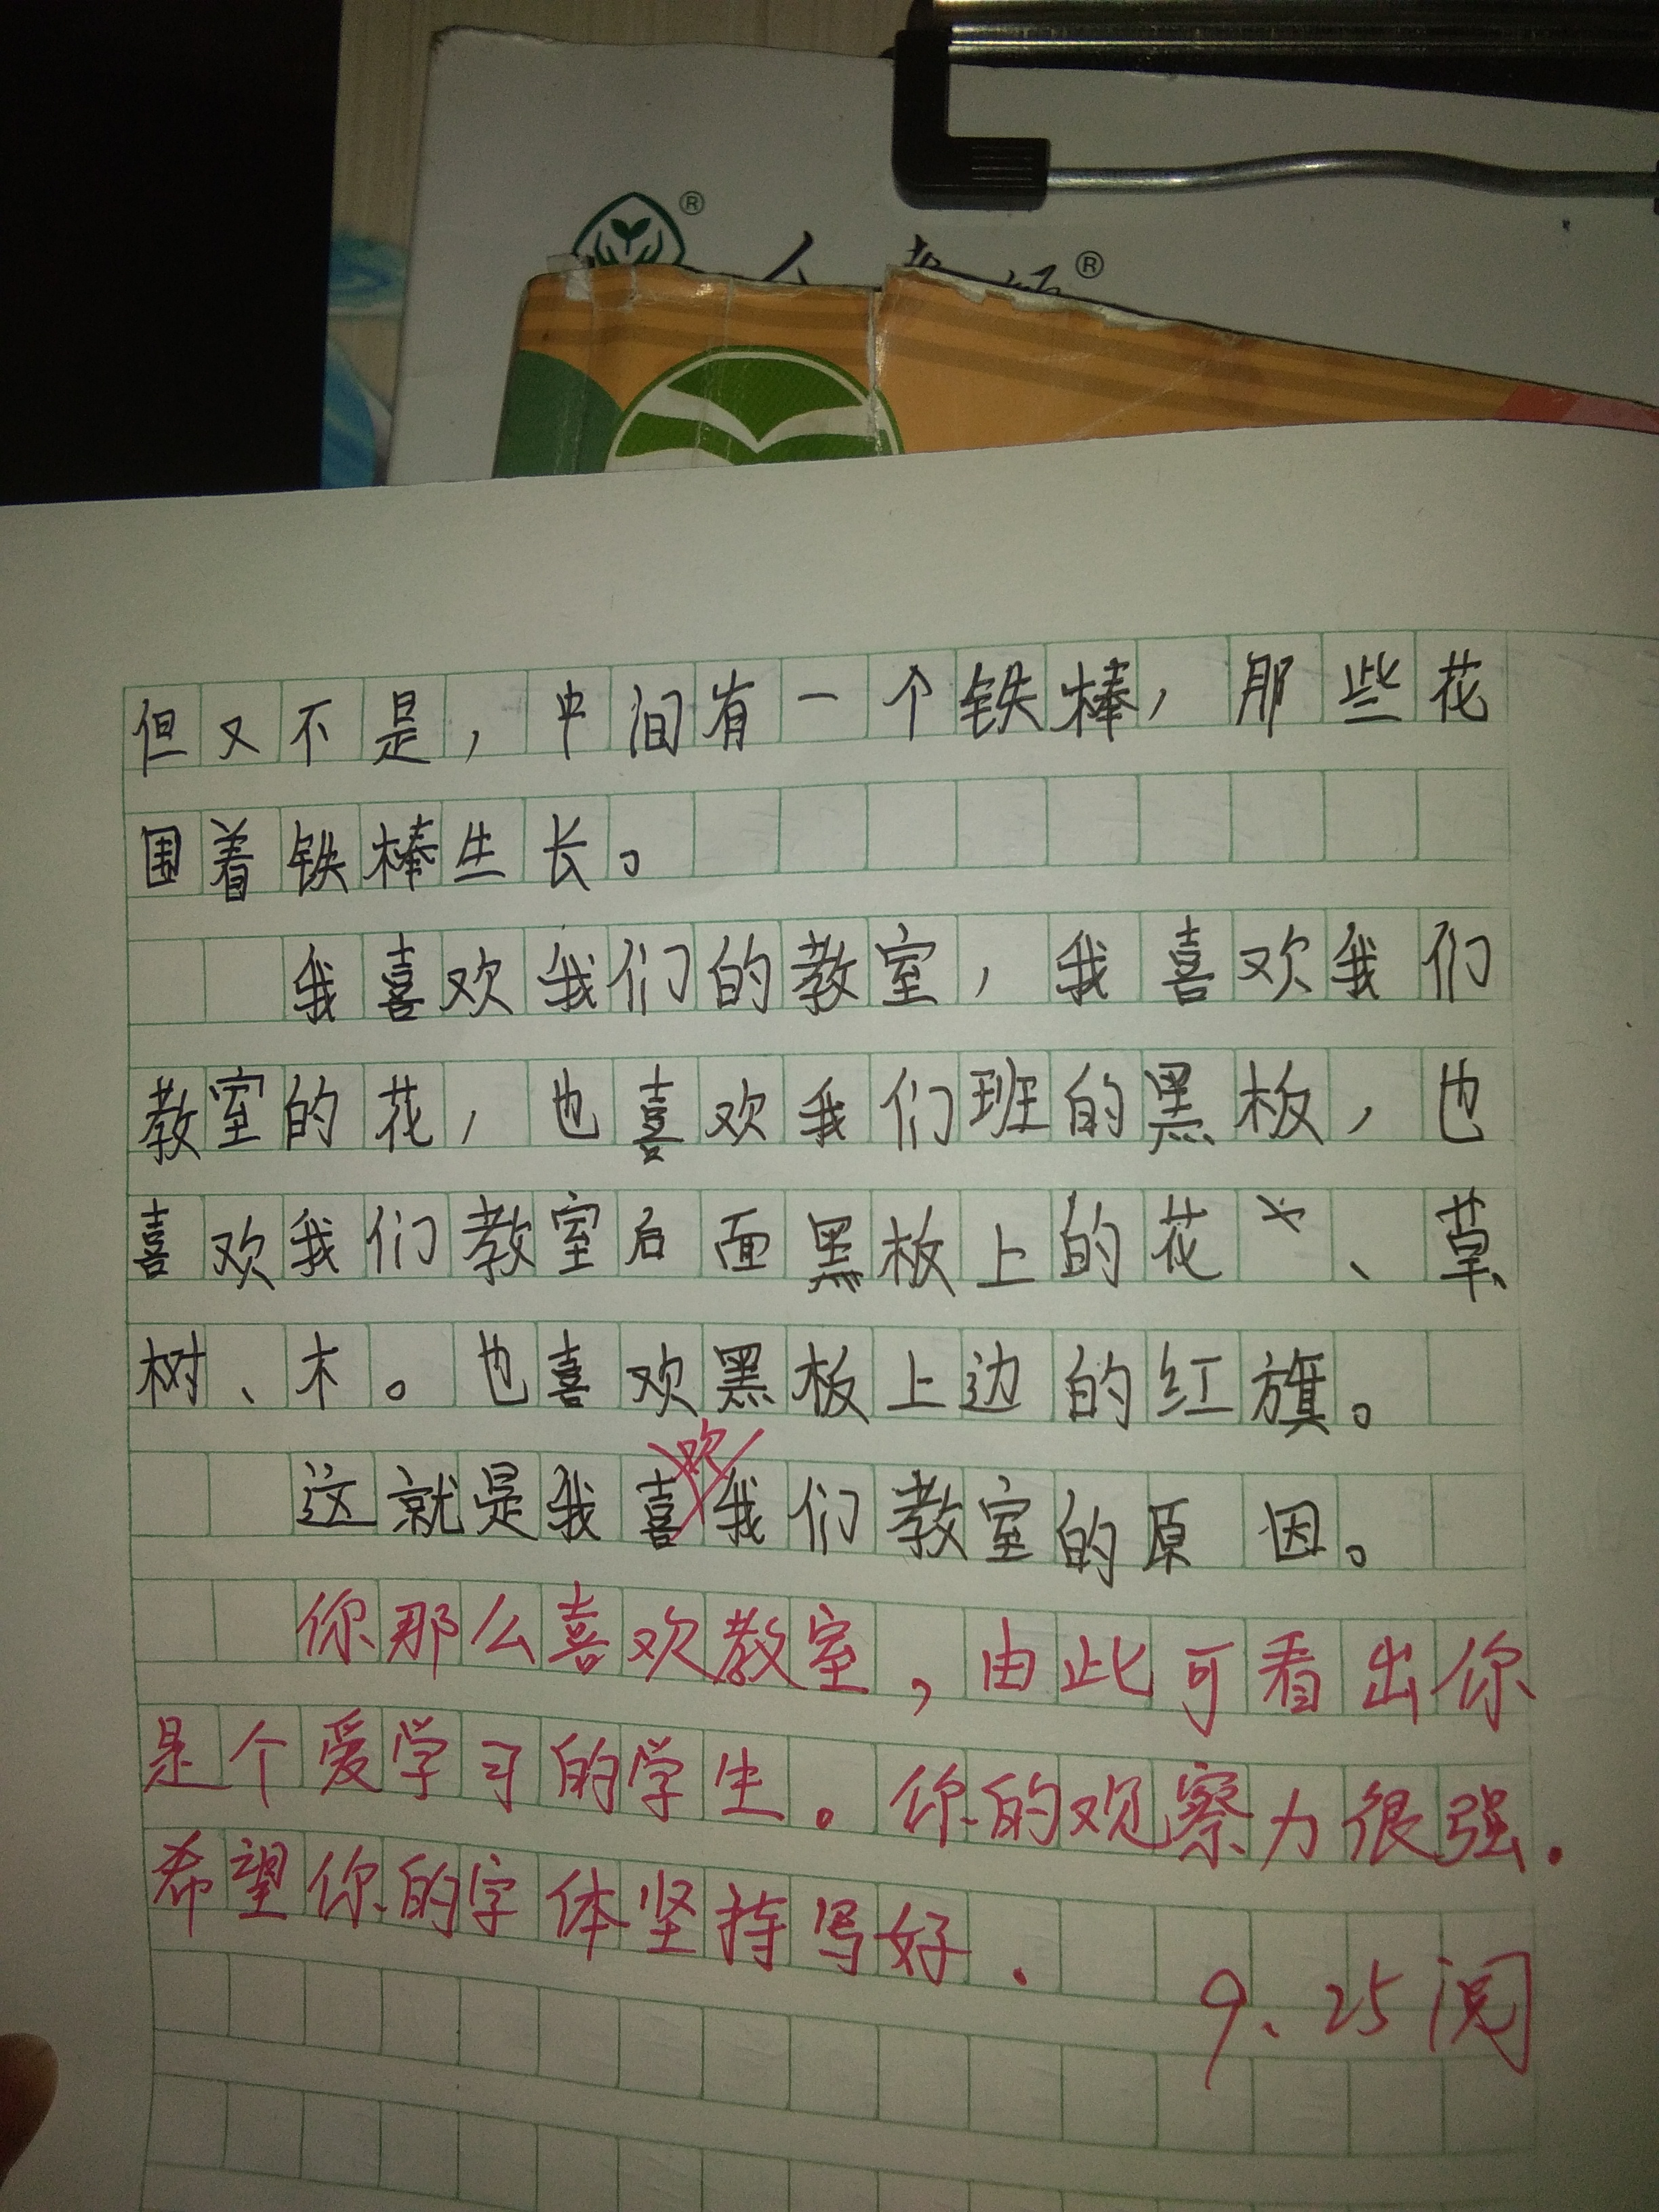 ®
®
但又不是，中间有一个铁棒，那些花
围着铁棒生长。
我喜欢我们的教室，我喜欢我们
教室的花，也喜欢我们班的黑板，也
喜欢我们教室后面黑板上的花、草
树、木。也喜欢黑板上边的红旗。
欢
这就是我喜我们教室的原因。
你那么喜欢教室，由此可看出你
是个爱学习的学生。你的观察力很强.
希望你的字体坚持写好.
9、25阅